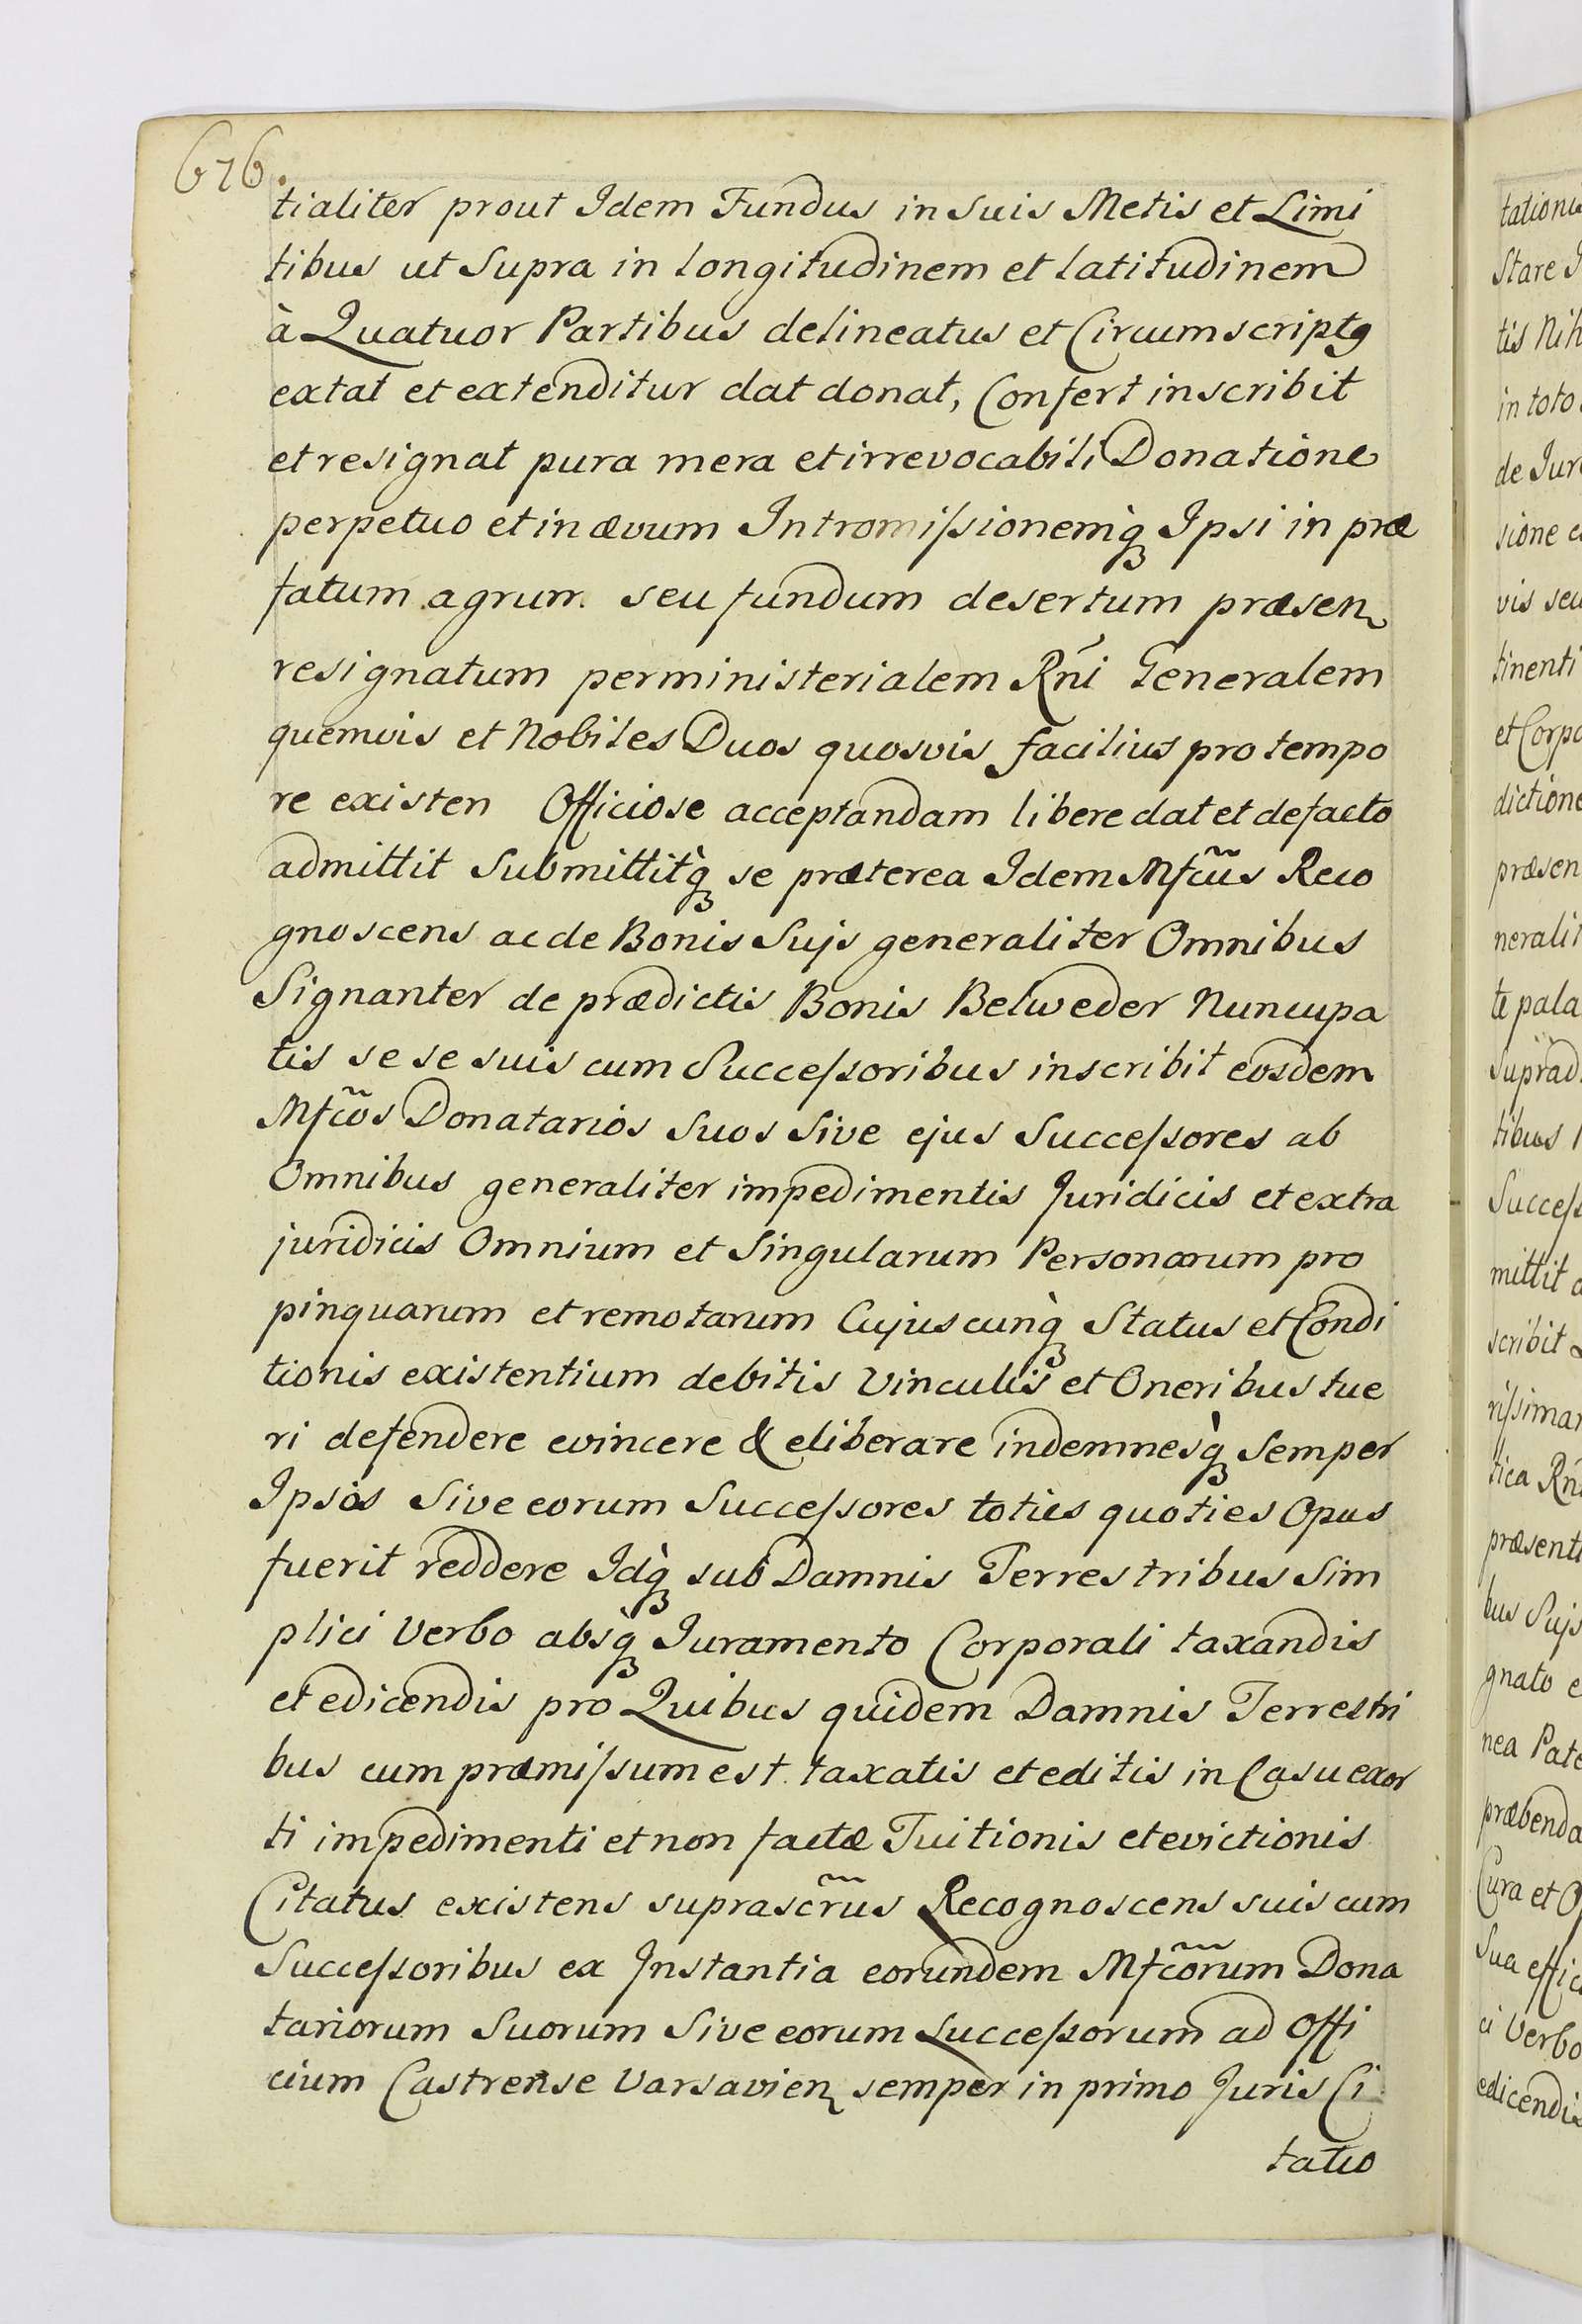 676.
tialiter prout Idem Fundus in Suis Metis et Limi
tibus ut Supra in longitudinem et latitudinem
à Quatuor Partibus delineatus et Circumscriptꝰ
extat et extenditur dat donat, Confert inscribit
et resignat pura mera et irrevocabili Donatione
perpetuo et in ævum Intromiſsionemq̀ꝫ Ipsi in præ
fatum agrum seu fundum desertum præsen
resignatum per ministerialem Rńi Generalem
quemvis et Nobiles Duos quosvis facilius pro tempo
re existen Officiose acceptandam libere dat et de facto
admittit Submittitq̀ꝫ se præterea Idem Mfcũs Reco
gnoscens ac de Bonis Suis generaliter Omnibus
Signanter de prædictis Bonis Belweder Nuncupa
tis se se suis cum Succeſsoribus inscribit eosdem
Mfcõs Donatarios Suos Sive ejus Succeſsores ab
Omnibus generaliter impedimentis Juridicis et extra
juridicis Omnium et Singularum Personarum pro
pinquarum et remotarum Cujuscunq̀ꝫ Status et Condi
tionis existentium debitis Vinculis et Oneribus tue
ri defendere evincere & eliberare indemnesq̀ꝫ Semper
Ipsos Sive eorum Succeſsores toties quoties Opus
fuerit reddere Idq̀ꝫ sub Damnis Terrestribus Sim
plici Verbo absq̀ꝫ Juramento Corporali taxandis
et edicendis pro Quibus quidem Damnis Terrestri
bus cum præmiſsum est taxatis et editis in Casu exor
ti impedimenti et non factæ Tuitionis et evictionis
Citatus existens suprascr̃us Recognoscens suis cum
Succeſsoribus ex Instantia eorundem Mfcõrum Dona
tariorum Suorum Sive eorum Succeſsorum ad Offi
cium Castrense Varsavien semper in primo Juris Ci
tatio